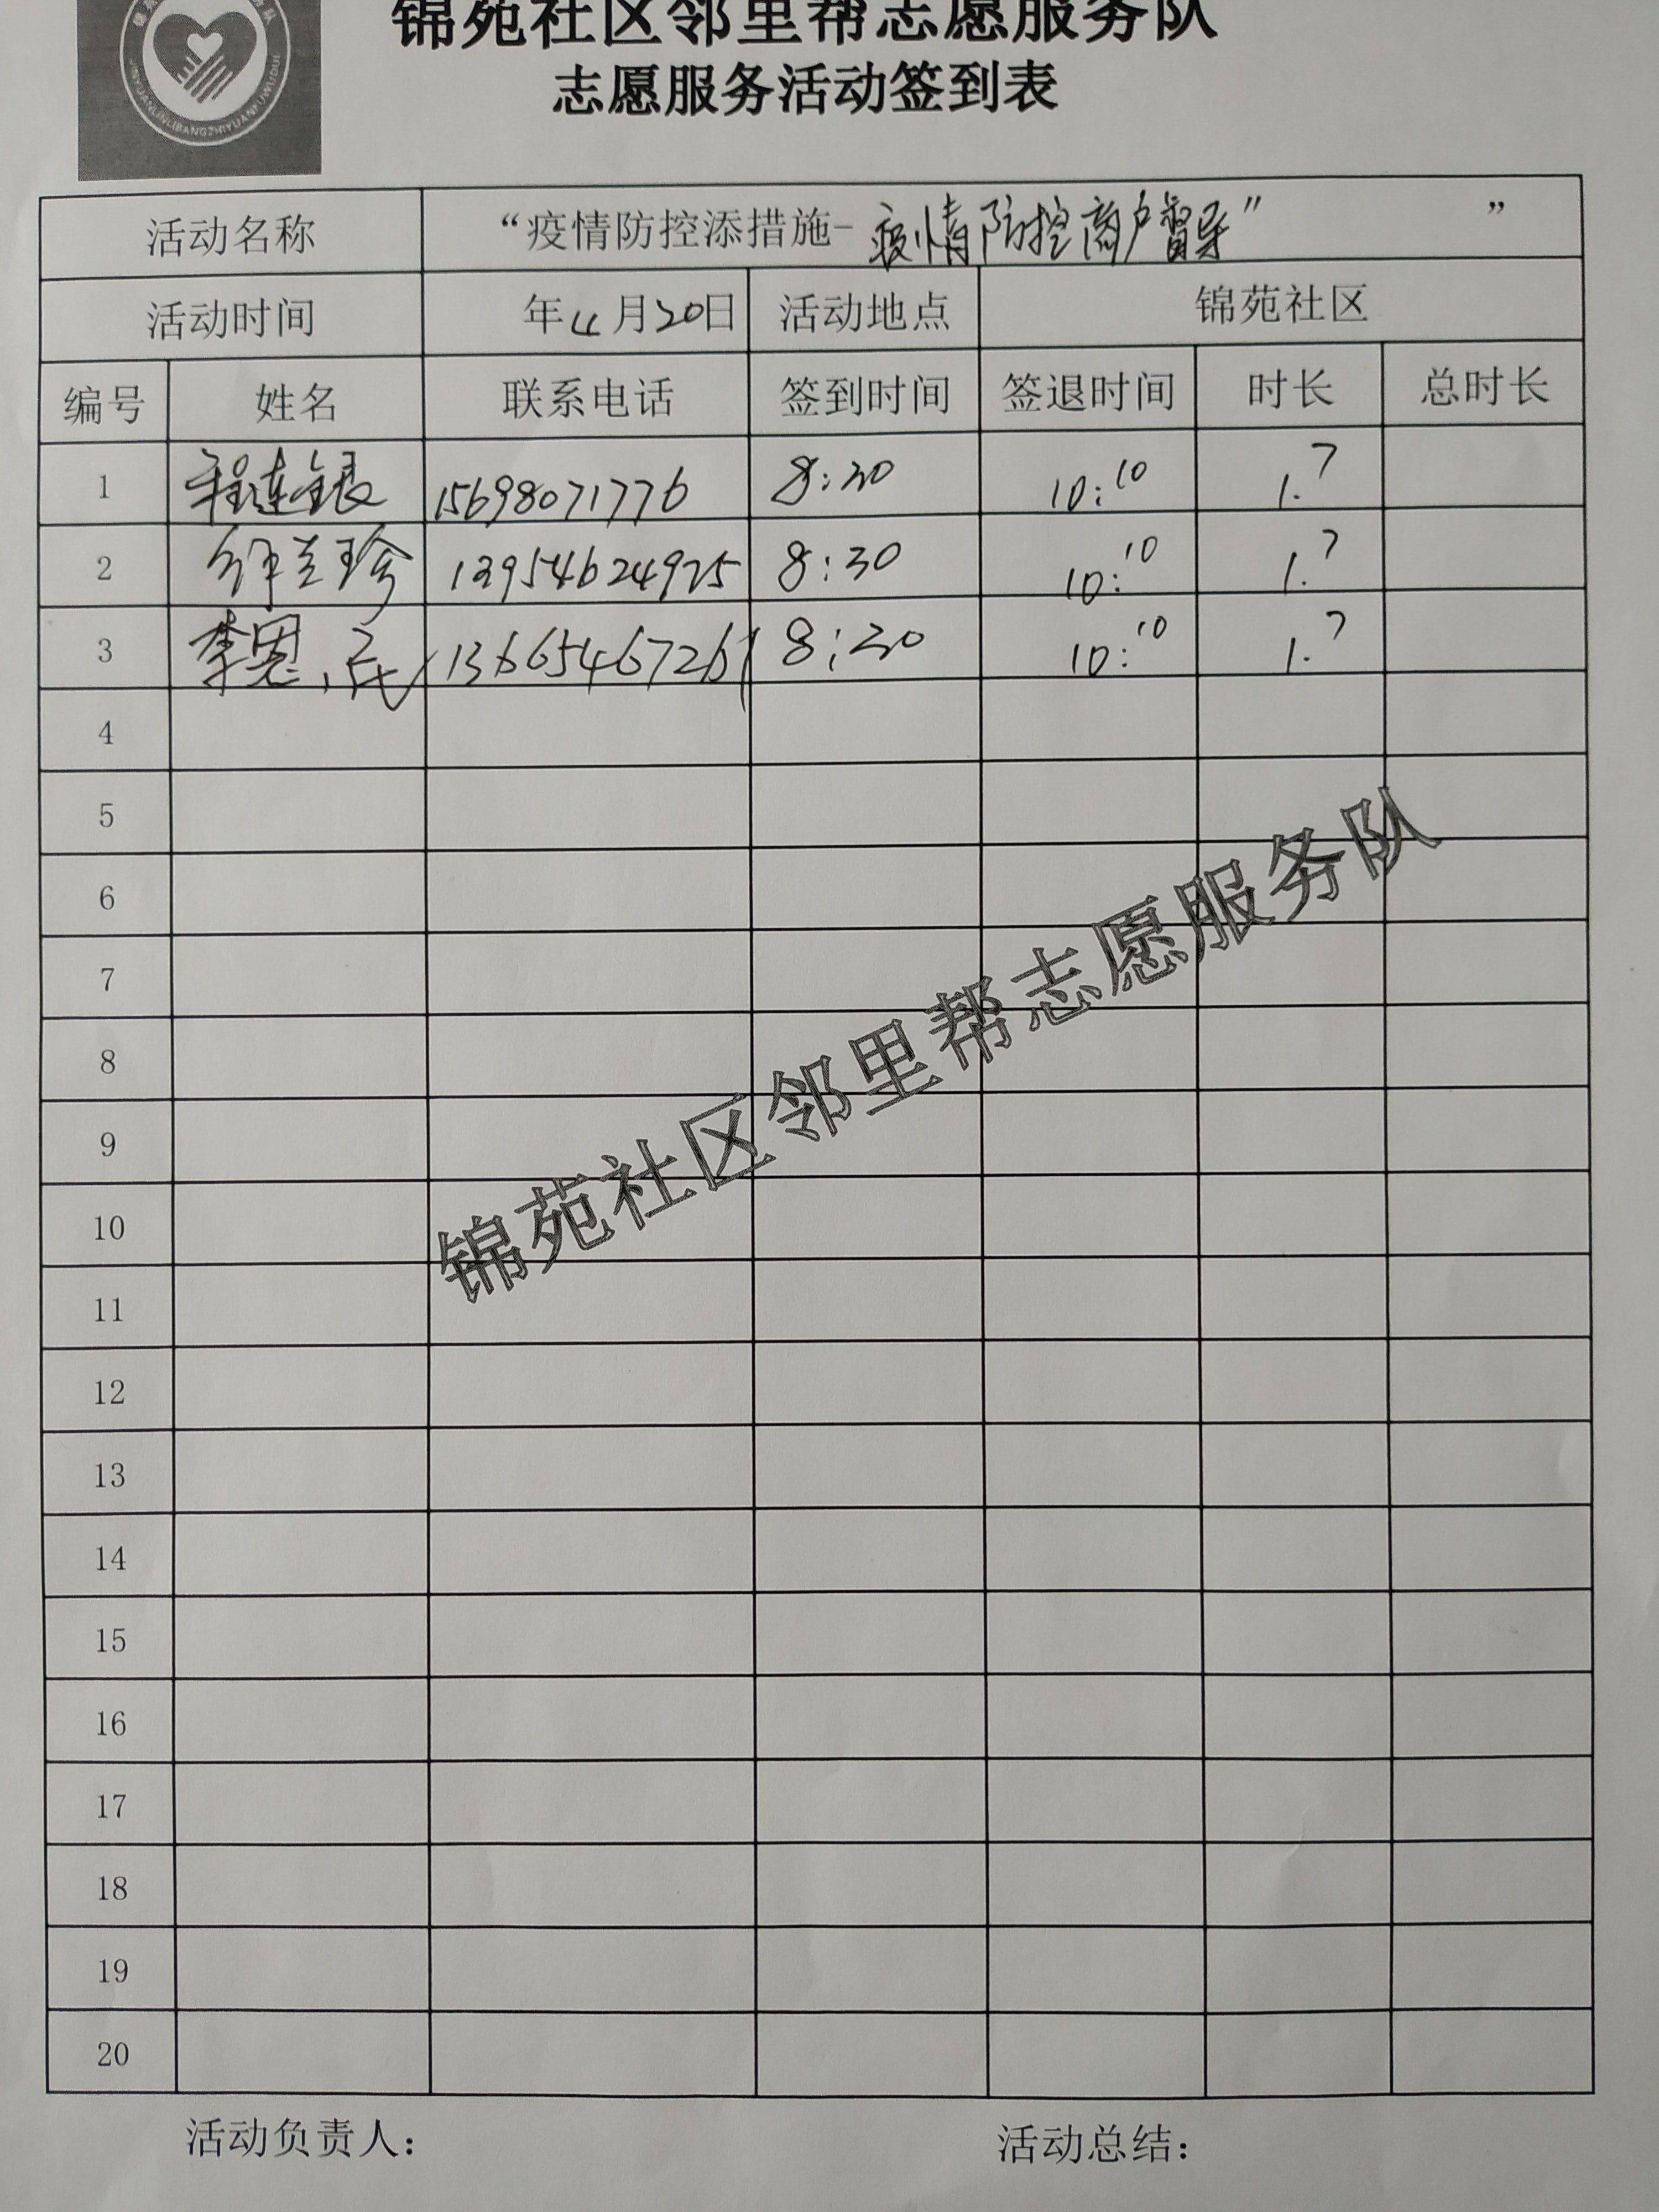 锦苑社区邻里帮志愿服务队
志愿服务活动签到表
JINYUANLINLIBANGZHIYUANFUWUDUI
活动名称 “疫情防控添措施-疫情防控商户督导” ”
活动时间 年4月20日 活动地点 锦苑社区
编号 姓名 联系电话 签到时间 签退时间 时长 总时长
1 程连银 15698071776 8:30 10:10 1.7
2 兰珍 13954624925 8:30 10:10 1.7
3 李恩民 13665467261 8:30 10:10 1.7
4
5
6
7
8
9
10
11
12
13
14
15
16
17
18
19
20
锦苑社区邻里帮志愿服务队
活动负责人: 活动总结: